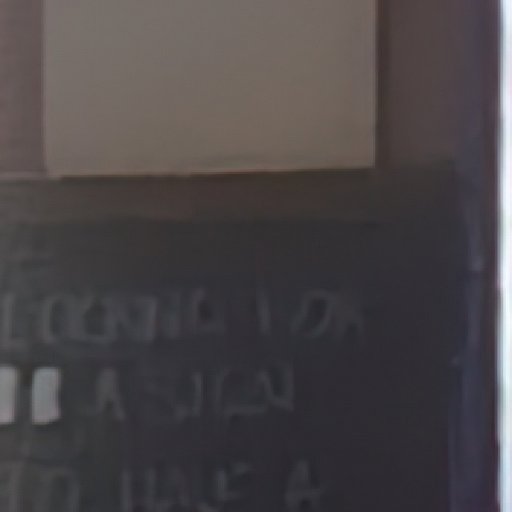 LOOKING FOR
A SIGN
TO HAVE A